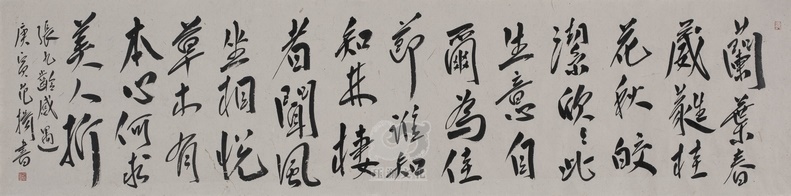 蘭葉春
葳蕤桂
花秋皎
潔欣〻此
生意自
爾為佳
節誰知
知林棲
者聞風
坐相悦
草木有
本心何求
美人折
張九齡感遇
庚寅范書